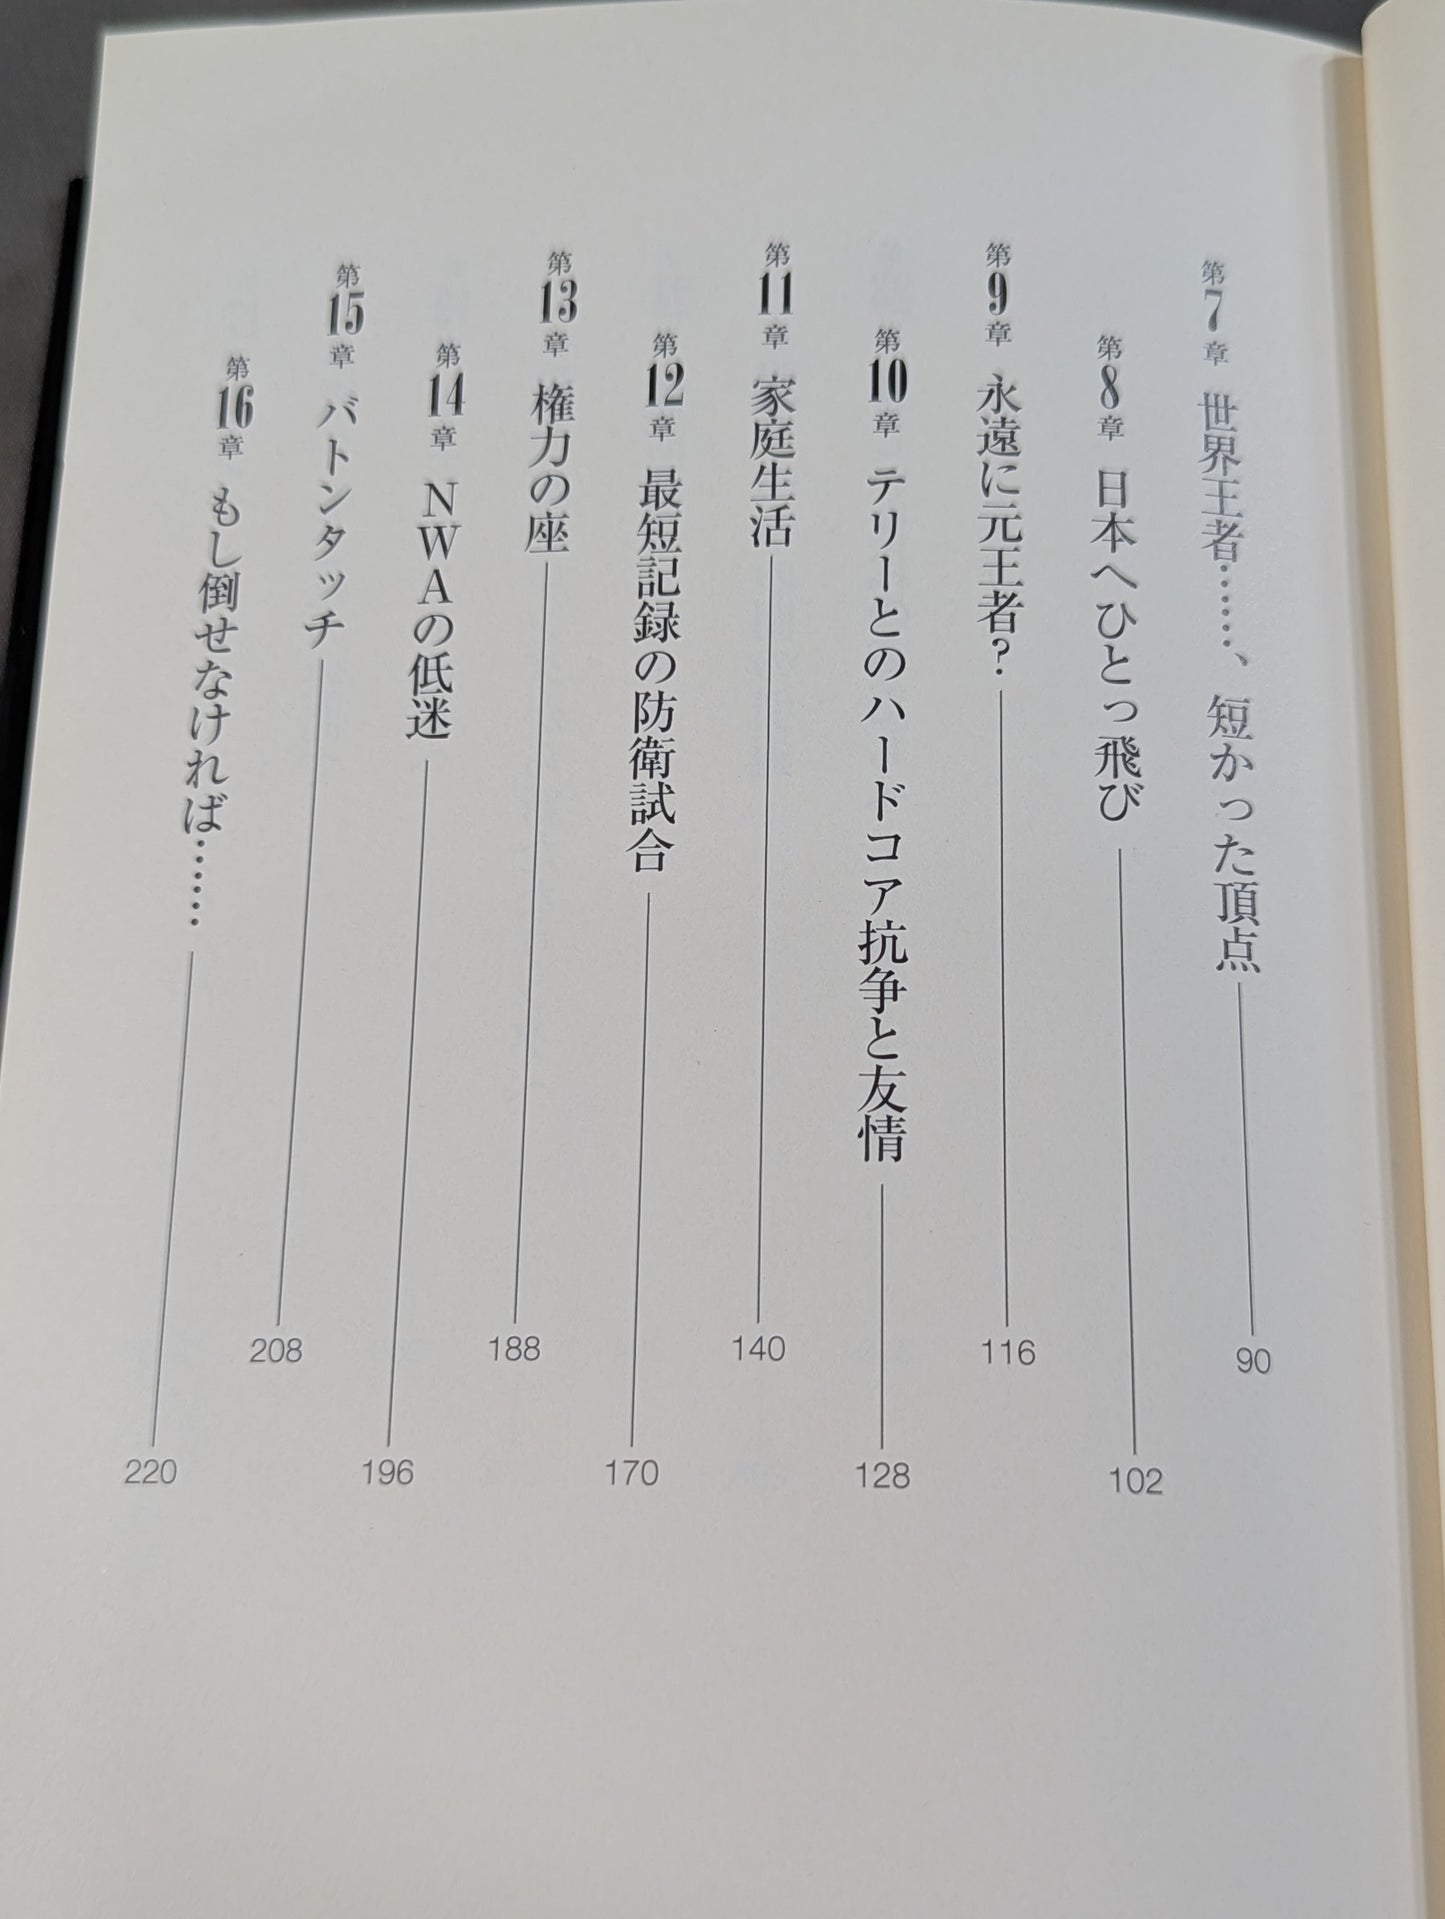 第7章 世界王者……、短かった頂点 90
第8章 日本へひとっ飛び 102
第9章 永遠に元王者? 116
第10章 テリーとのハードコア抗争と友情 128
第11章 家庭生活 140
第12章 最短記録の防衛試合 170
第13章 権力の座 188
第14章 NWAの低迷 196
第15章 バトンタッチ 208
第16章 もし倒せなければ…… 220